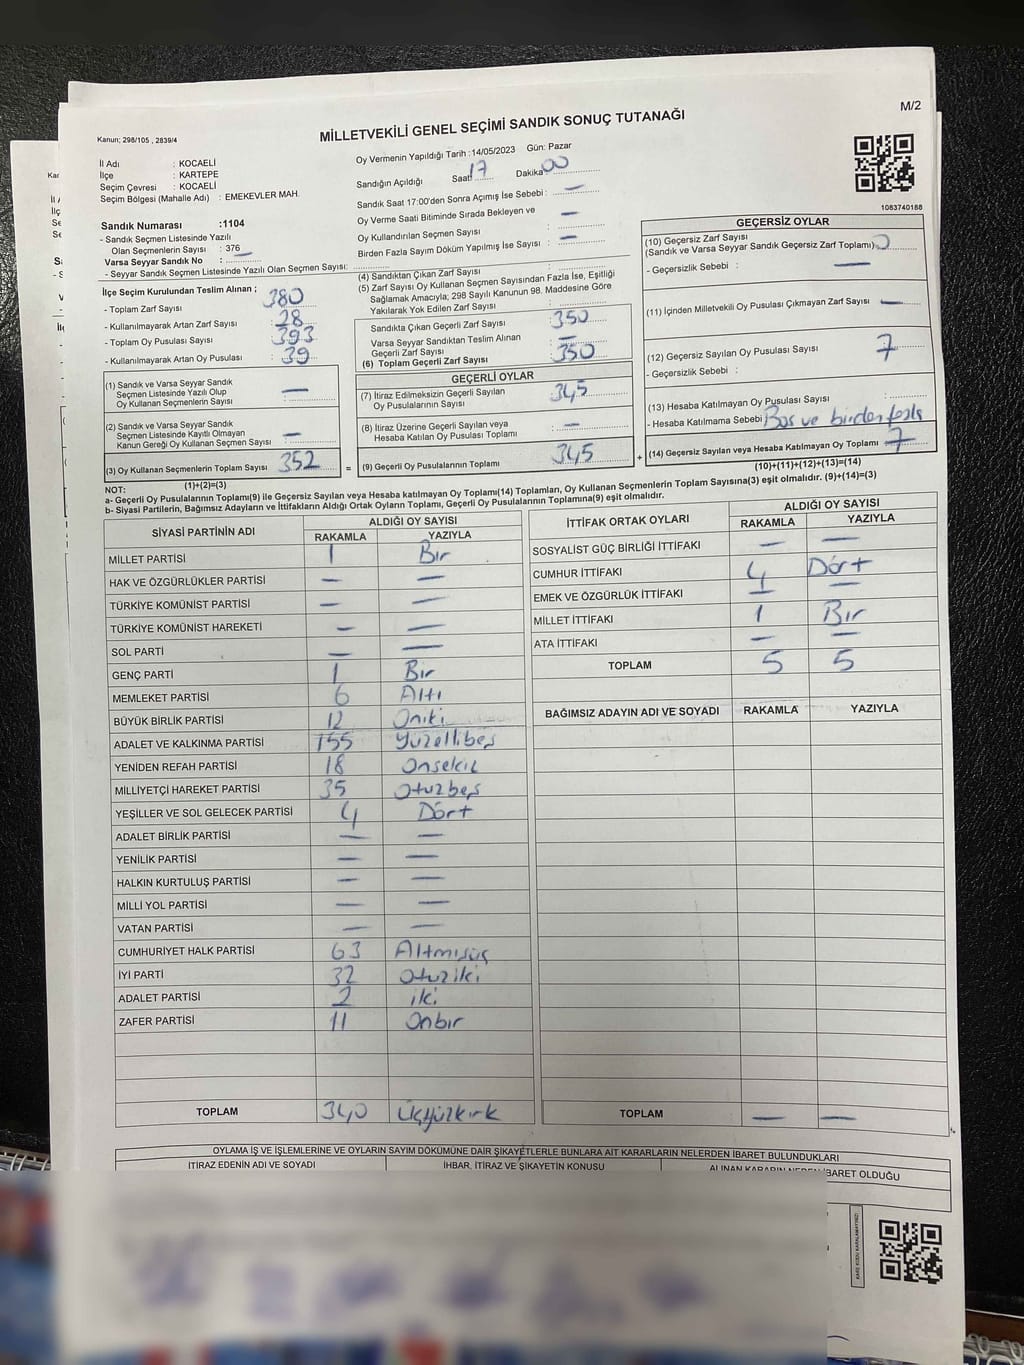 M/2
Kanun; 298/105 , 2839/4
MİLLETVEKİLİ GENEL SEÇİMİ SANDIK SONUÇ TUTANAĞI
İl Adı : KOCAELİ
İlçe : KARTEPE
Seçim Çevresi : KOCAELİ
Seçim Bölgesi (Mahalle Adı) : EMEKEVLER MAH.
Sandık Numarası :1104
- Sandık Seçmen Listesinde Yazılı
Olan Seçmenlerin Sayısı : 376
Varsa Seyyar Sandık No :
- Seyyar Sandık Seçmen Listesinde Yazılı Olan Seçmen Sayısı:
Oy Vermenin Yapıldığı Tarih :14/05/2023 Gün: Pazar
Sandığın Açıldığı Saat 17 Dakika 00
Sandık Saat 17:00'den Sonra Açımış İse Sebebi : —
Oy Verme Saati Bitiminde Sırada Bekleyen ve
Oy Kullandırılan Seçmen Sayısı : —
Birden Fazla Sayım Döküm Yapılmış İse Sayısı : —
1083740188
İlçe Seçim Kurulundan Teslim Alınan ;
- Toplam Zarf Sayısı : 380
- Kullanılmayarak Artan Zarf Sayısı : 28
- Toplam Oy Pusulası Sayısı : 393
- Kullanılmayarak Artan Oy Pusulası : 39
(1) Sandık ve Varsa Seyyar Sandık
Seçmen Listesinde Yazılı Olup
Oy Kullanan Seçmenlerin Sayısı : —
(2) Sandık ve Varsa Seyyar Sandık
Seçmen Listesinde Kayıtlı Olmayan
Kanun Gereği Oy Kullanan Seçmen Sayısı : —
(3) Oy Kullanan Seçmenlerin Toplam Sayısı 352
(1)+(2)=(3)
(4) Sandıktan Çıkan Zarf Sayısı :
(5) Zarf Sayısı Oy Kullanan Seçmen Sayısından Fazla İse, Eşitliği
Sağlamak Amacıyla; 298 Sayılı Kanunun 98. Maddesine Göre
Yakılarak Yok Edilen Zarf Sayısı :
Sandıkta Çıkan Geçerli Zarf Sayısı : 350
Varsa Seyyar Sandıktan Teslim Alınan
Geçerli Zarf Sayısı : —
(6) Toplam Geçerli Zarf Sayısı : 350
GEÇERLİ OYLAR
(7) İtiraz Edilmeksizin Geçerli Sayılan
Oy Pusulalarının Sayısı : 345
(8) İtiraz Üzerine Geçerli Sayılan veya
Hesaba Katılan Oy Pusulası Toplamı : —
= (9) Geçerli Oy Pusulalarının Toplamı : 345 +
GEÇERSİZ OYLAR
(10) Geçersiz Zarf Sayısı
(Sandık ve Varsa Seyyar Sandık Geçersiz Zarf Toplamı)
- Geçersizlik Sebebi : —
(11) İçinden Milletvekili Oy Pusulası Çıkmayan Zarf Sayısı : —
(12) Geçersiz Sayılan Oy Pusulası Sayısı : 7
- Geçersizlik Sebebi :
(13) Hesaba Katılmayan Oy Pusulası Sayısı :
- Hesaba Katılmama Sebebi : Boş ve birden fazla
(14) Geçersiz Sayılan veya Hesaba Katılmayan Oy Toplamı : 7
(10)+(11)+(12)+(13)=(14)
NOT:
a- Geçerli Oy Pusulalarının Toplamı(9) ile Geçersiz Sayılan veya Hesaba katılmayan Oy Toplamı(14) Toplamları, Oy Kullanan Seçmenlerin Toplam Sayısına(3) eşit olmalıdır. (9)+(14)=(3)
b- Siyasi Partilerin, Bağımsız Adayların ve İttifakların Aldığı Ortak Oyların Toplamı, Geçerli Oy Pusulalarının Toplamına(9) eşit olmalıdır.
SİYASİ PARTİNİN ADI ALDIĞI OY SAYISI
RAKAMLA YAZIYLA
MİLLET PARTİSİ 1 Bir
HAK VE ÖZGÜRLÜKLER PARTİSİ — —
TÜRKİYE KOMÜNİST PARTİSİ — —
TÜRKİYE KOMÜNİST HAREKETİ — —
SOL PARTİ — —
GENÇ PARTİ 1 Bir
MEMLEKET PARTİSİ 6 Altı
BÜYÜK BİRLİK PARTİSİ 12 Oniki
ADALET VE KALKINMA PARTİSİ 155 Yüzellibeş
YENİDEN REFAH PARTİSİ 18 Onsekiz
MİLLİYETÇİ HAREKET PARTİSİ 35 Otuzbeş
YEŞİLLER VE SOL GELECEK PARTİSİ 4 Dört
ADALET BİRLİK PARTİSİ — —
YENİLİK PARTİSİ — —
HALKIN KURTULUŞ PARTİSİ — —
MİLLİ YOL PARTİSİ — —
VATAN PARTİSİ — —
CUMHURİYET HALK PARTİSİ 63 Altmışüç
İYİ PARTİ 32 Otuziki
ADALET PARTİSİ 2 iki
ZAFER PARTİSİ 11 Onbir
TOPLAM 340 Üçyüzkırk
İTTİFAK ORTAK OYLARI ALDIĞI OY SAYISI
RAKAMLA YAZIYLA
SOSYALİST GÜÇ BİRLİĞİ İTTİFAKI — —
CUMHUR İTTİFAKI 4 Dört
EMEK VE ÖZGÜRLÜK İTTİFAKI — —
MİLLET İTTİFAKI 1 Bir
ATA İTTİFAKI — —
TOPLAM 5 5
BAĞIMSIZ ADAYIN ADI VE SOYADI RAKAMLA YAZIYLA
TOPLAM — —
OYLAMA İŞ VE İŞLEMLERİNE VE OYLARIN SAYIM DÖKÜMÜNE DAİR ŞİKAYETLERLE BUNLARA AİT KARARLARIN NELERDEN İBARET BULUNDUKLARI
İTİRAZ EDENİN ADI VE SOYADI İHBAR, İTİRAZ VE ŞİKAYETİN KONUSU ALINAN KARARIN NEDEN İBARET OLDUĞU